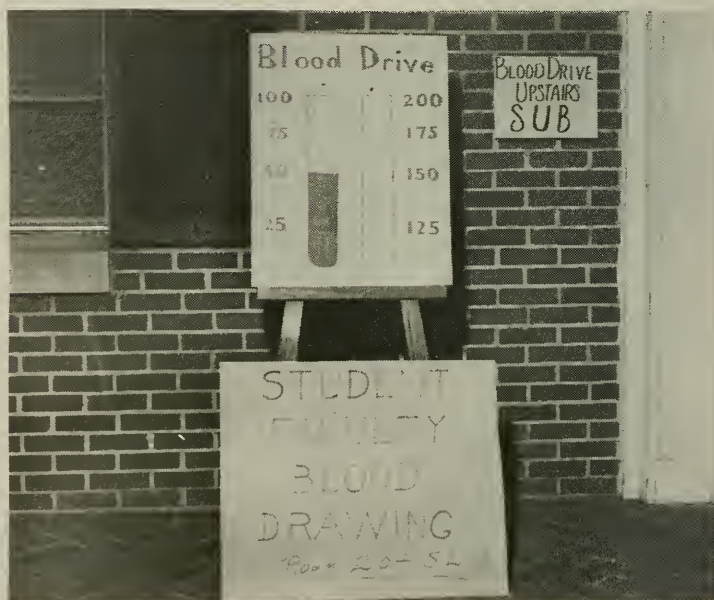 Blood Drive
100 200
75 175
50 150
25 125
BLOOD DRIVE
UPSTAIRS
SUB
STUDENT
FACULTY
BLOOD
DRAWING